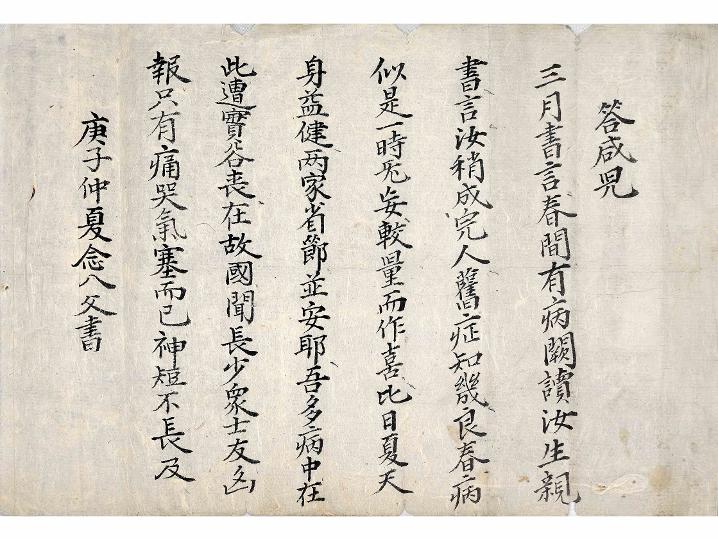 答咸児
三月書言春間有病闕讀汝生親
書言汝稍成完人舊症知幾良春病
似是一時旡妄較量而作喜比日夏天
身益健两家省節並安耶吾多病中在
此遭實谷丧在故國聞長少衆士友凶
報只有痛哭氣塞而已神短不長及
庚子仲夏念八父書